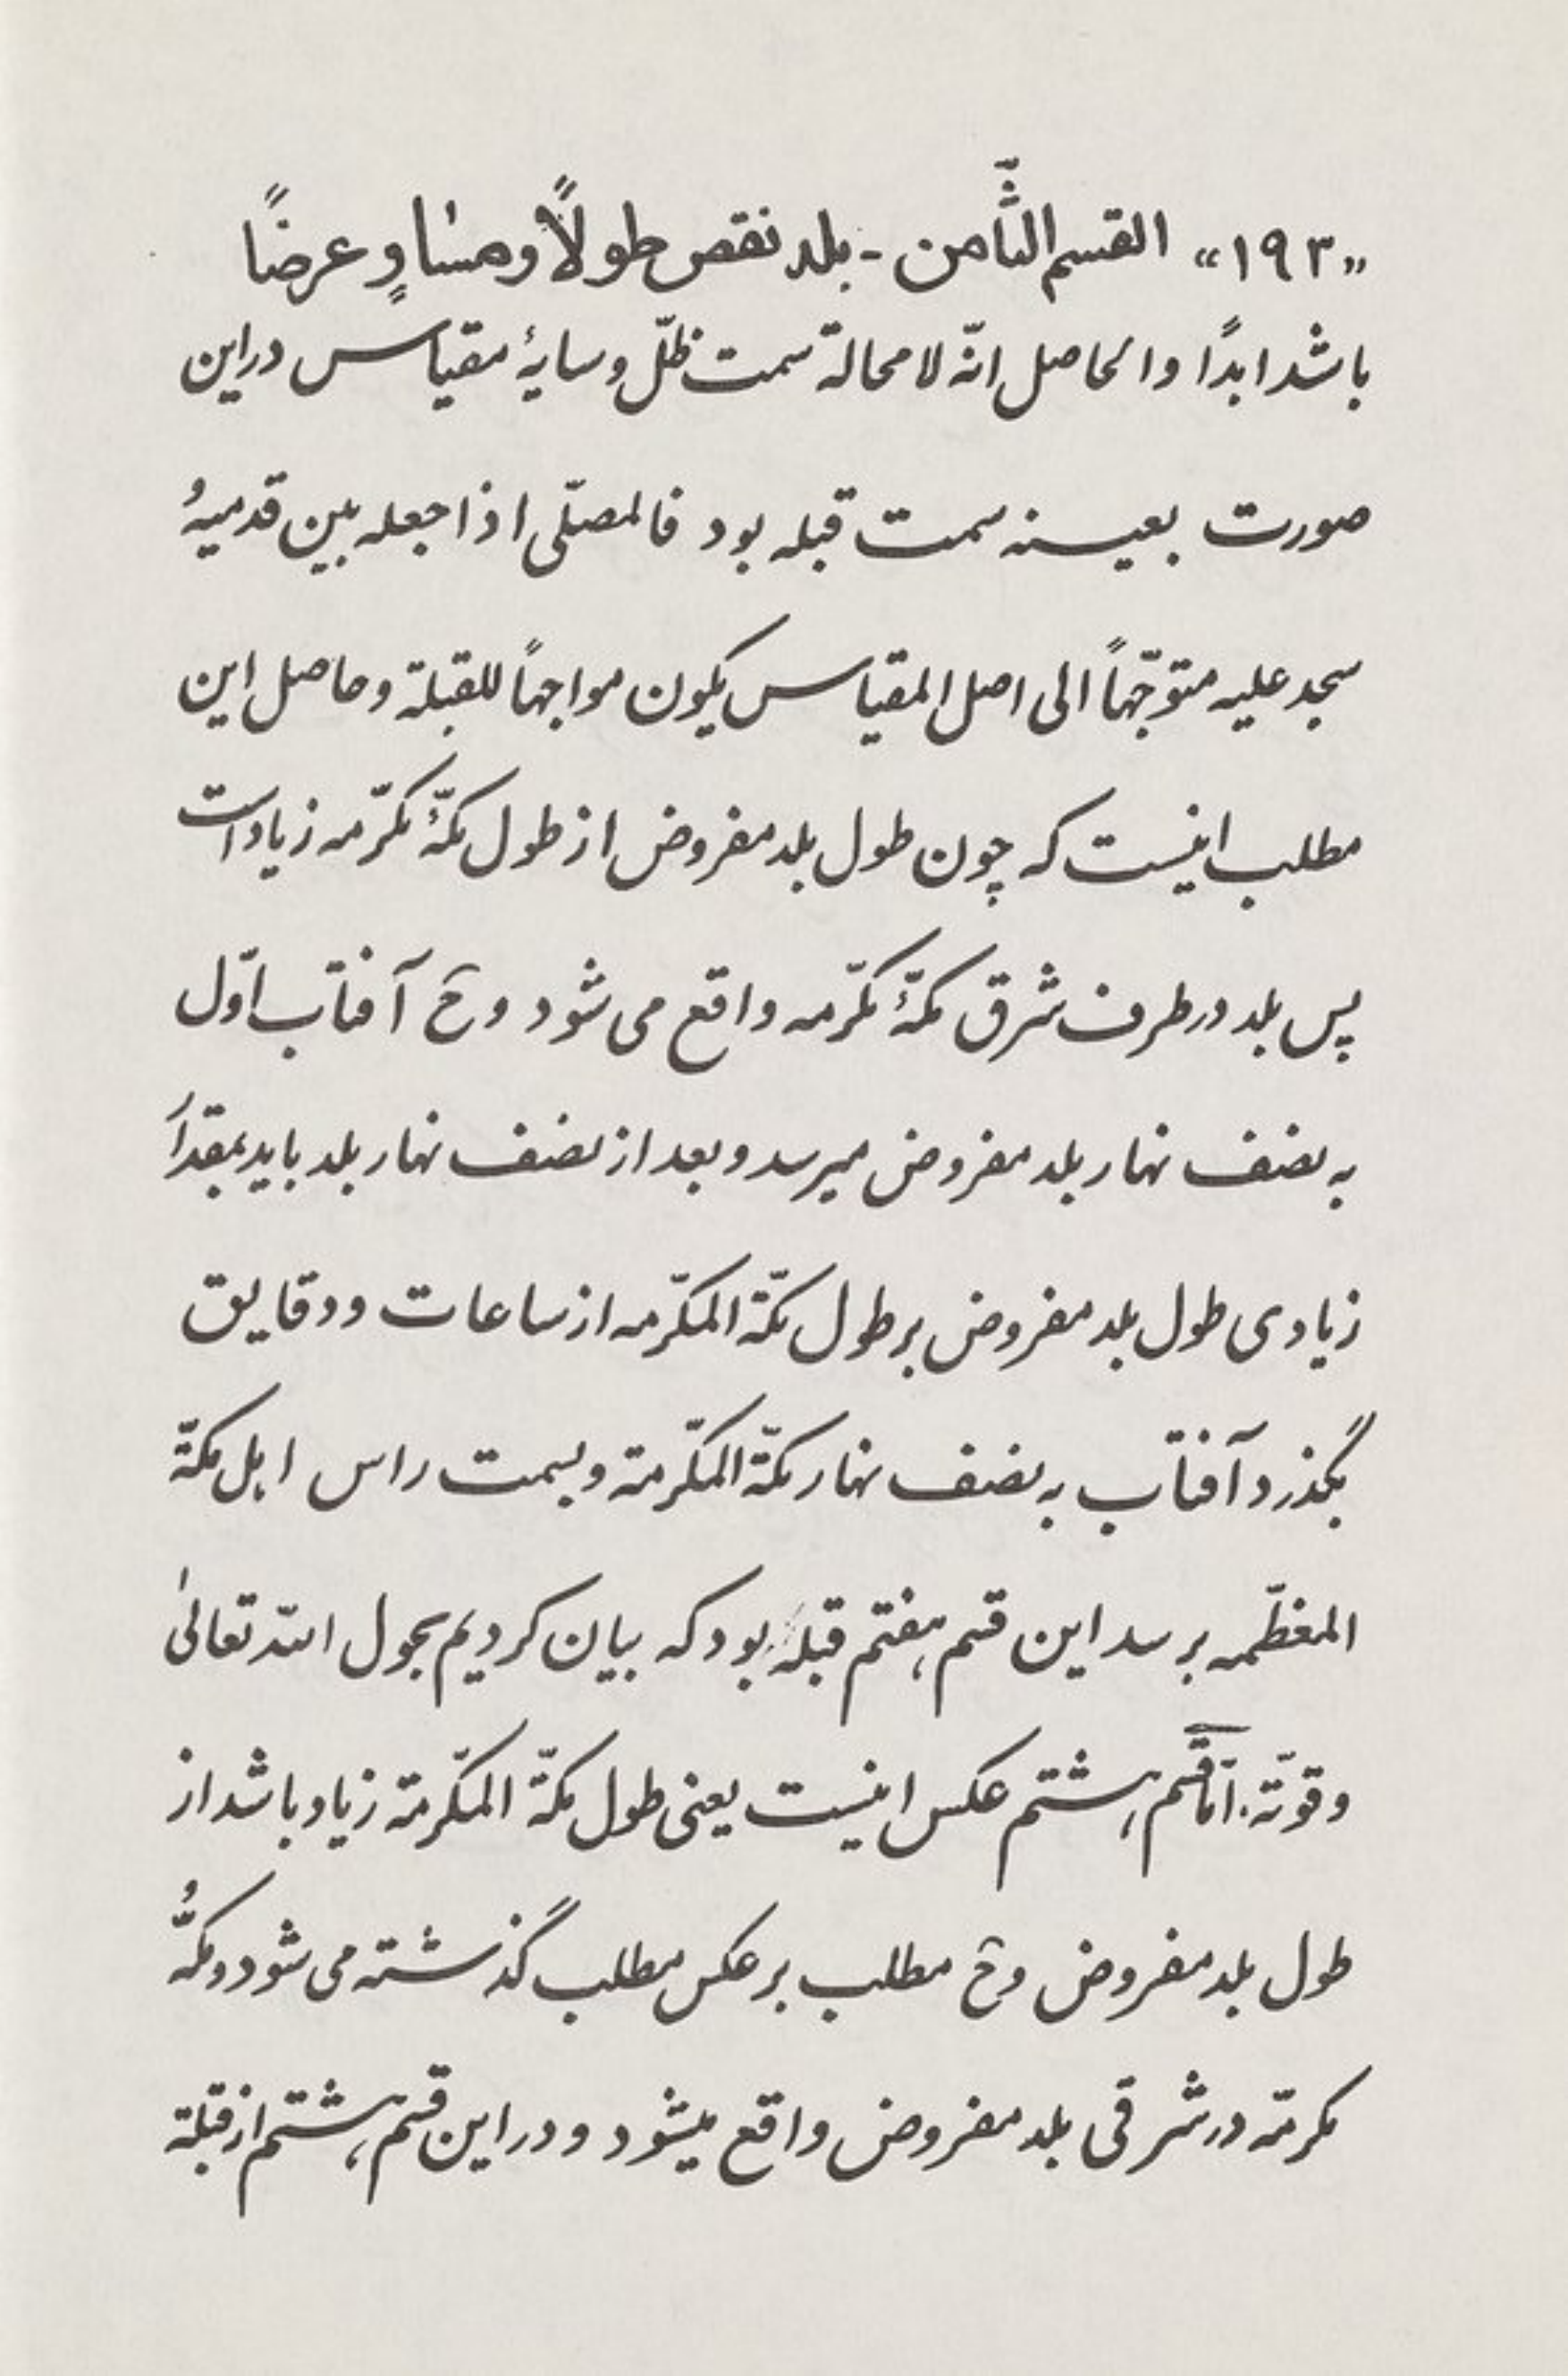 «۱۹۳» القسم الثّامن - بلد نقص طولاً ومساوٍ عرضًا
باشد ابدًا والحاصل انّه لامحالة سمت ظلّ و سایهٔ مقیاس در این
صورت بعینه سمت قبله بود فالمصلّی اذا جعله بین قدمیه و
سجد علیه متوجّهاً الی اصل المقیاس یکون مواجهاً للقبلة و حاصل این
مطلب اینست که چون طول بلد مفروض از طول مکّهٔ مکرّمه زیاد است
پس بلد در طرف شرق مکّهٔ مکرّمه واقع می شود و ح آفتاب اوّل
به نصف نهار بلد مفروض میرسد و بعد از نصف نهار بلد باید بمقدار
زیادی طول بلد مفروض بر طول مکّة المکرّمه از ساعات و دقایق
بگذرد آفتاب به نصف نهار مکّة المکرّمة و بسمت راس اهل مکّة
المعظّمه برسد این قسم هفتم قبله بود که بیان کردیم بحول اللّه تعالیٰ
و قوّته. امّا قسم هشتم عکس اینست یعنی طول مکّة المکرّمة زیاد باشد از
طول بلد مفروض و ح مطلب بر عکس مطلب گذشته می شود و مکّهٔ
مکرمّه در شرقی بلد مفروض واقع میشود و در این قسم هشتم از قبلة